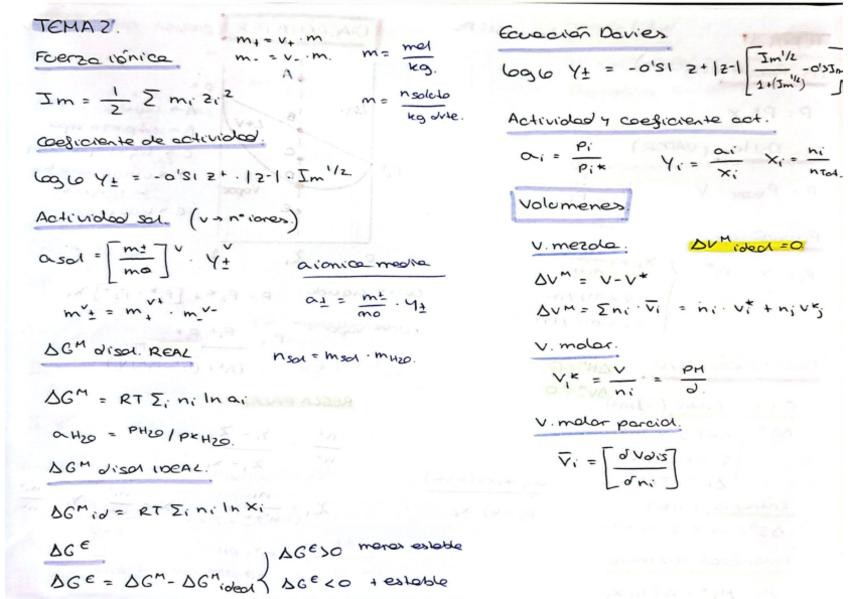 TEMA 2.
Fuerza iónica
m₊ = v₊ · m.
m₋ = v₋ · m.
m = mol / kg.
Im = 1/2 Σ mᵢ zᵢ²
m = n soluto / kg dvte.
Coeficiente de actividad.
log₁₀ γ± = -0'51 z+ · |z-| · Im^1/2
Actividad sol. (v → nº iones)
a sol = [m± / m0]^v · γ±^v
m^v± = m₊^v+ · m₋^v-
a iónica media
a± = m± / m0 · γ±
ΔG^M disol. REAL
n sol = m sol · m H2O.
ΔG^M = RT Σᵢ nᵢ ln aᵢ
a H2O = P H2O / P* H2O.
ΔG^M disol IDEAL.
ΔG^M id = RT Σᵢ nᵢ ln xᵢ
ΔG^E
ΔG^E = ΔG^M - ΔG^M ideal
ΔG^E > 0 menos estable
ΔG^E < 0 + estable
Ecuación Davies
log₁₀ γ± = -0'51 z+ |z-| [Im^1/2 / 1+(Im^1/2) - 0'3Im]
Actividad y coeficiente act.
aᵢ = Pᵢ / Pᵢ* γᵢ = aᵢ / xᵢ xᵢ = nᵢ / n Tot.
Volumenes
V. mezcla. ΔV^M ideal = 0
ΔV^M = V - V*
ΔV^M = Σnᵢ · V̄ᵢ = nᵢ · Vᵢ* + nⱼ Vⱼ*
V. molar.
Vᵢ* = V / nᵢ = PM / d.
V. molar parcial.
V̄ᵢ = [∂Vdis / ∂nᵢ]